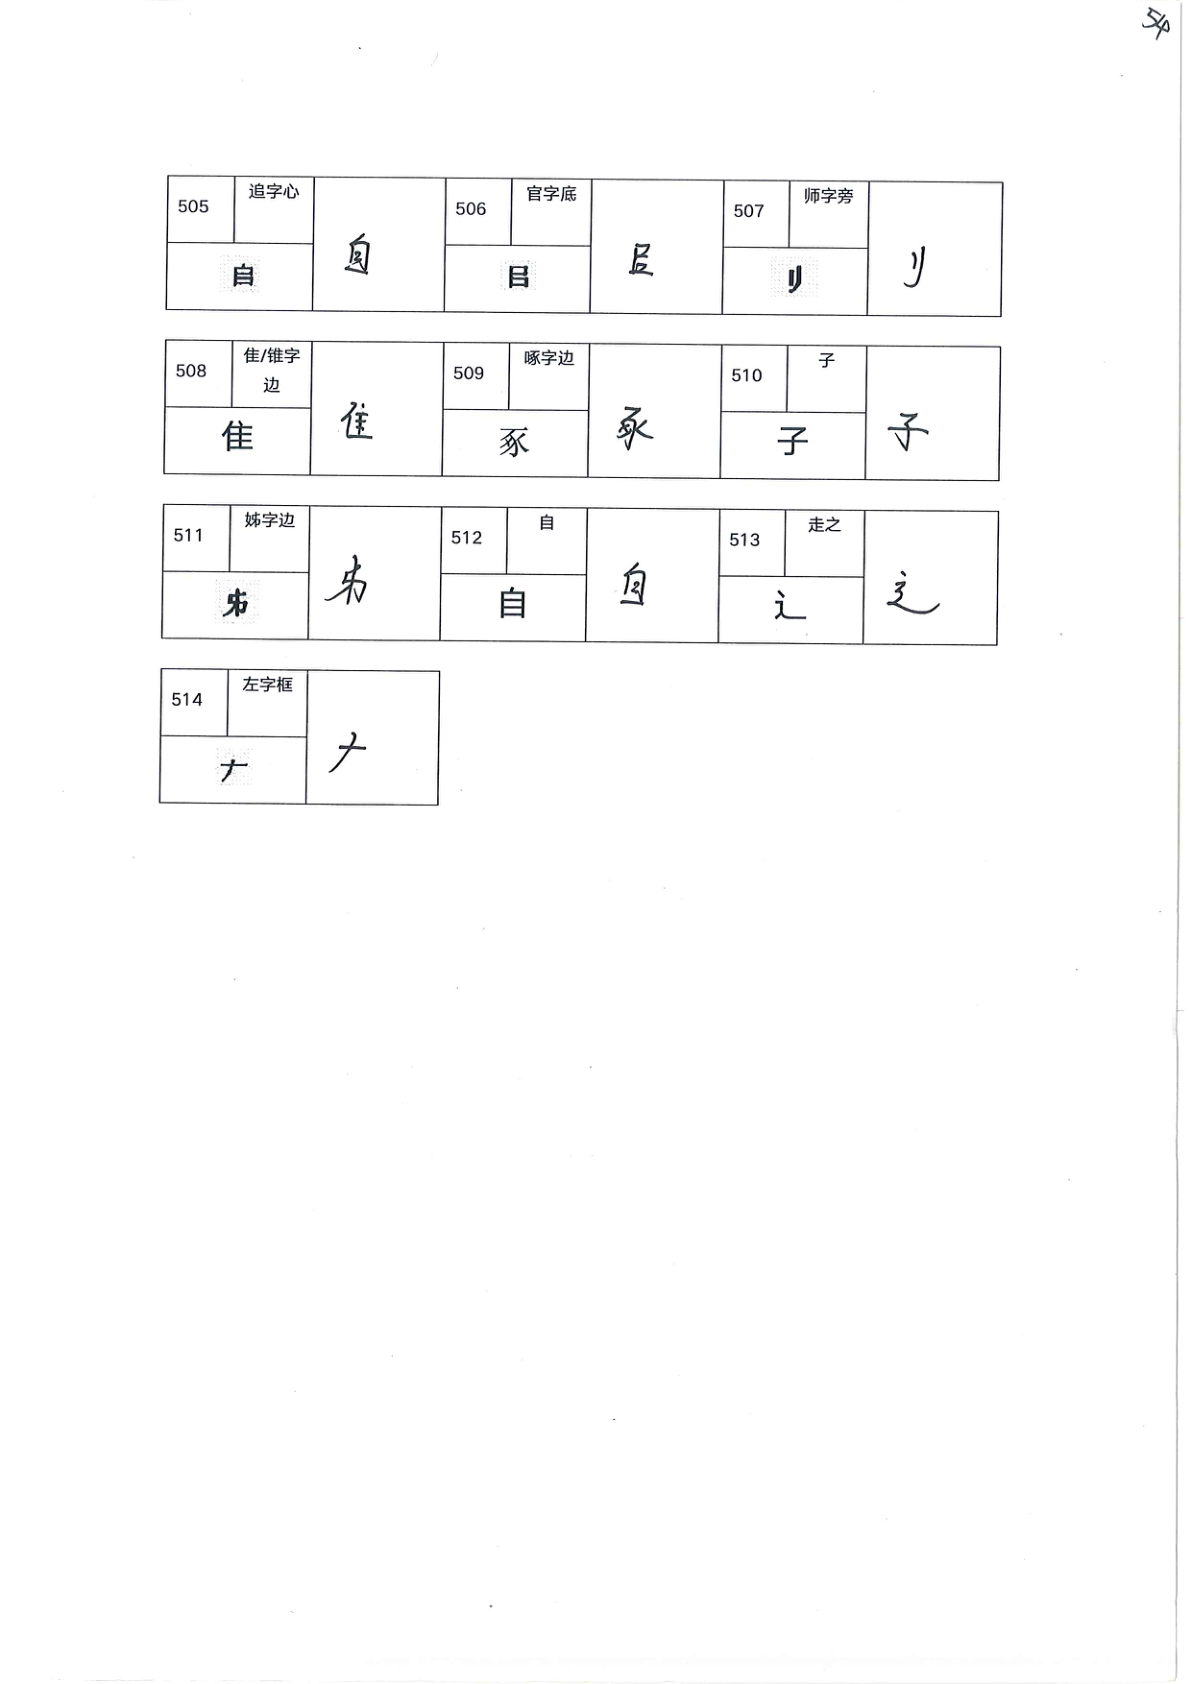 54
505 追字心 𠂤 𠂤
506 官字底 㠯 㠯
507 师字旁 刂 刂
508 隹/锥字边 隹 隹
509 啄字边 豖 豖
510 子 子 子
511 姊字边
512 自 自 自
513 走之 辶 辶
514 左字框 𠂇 𠂇